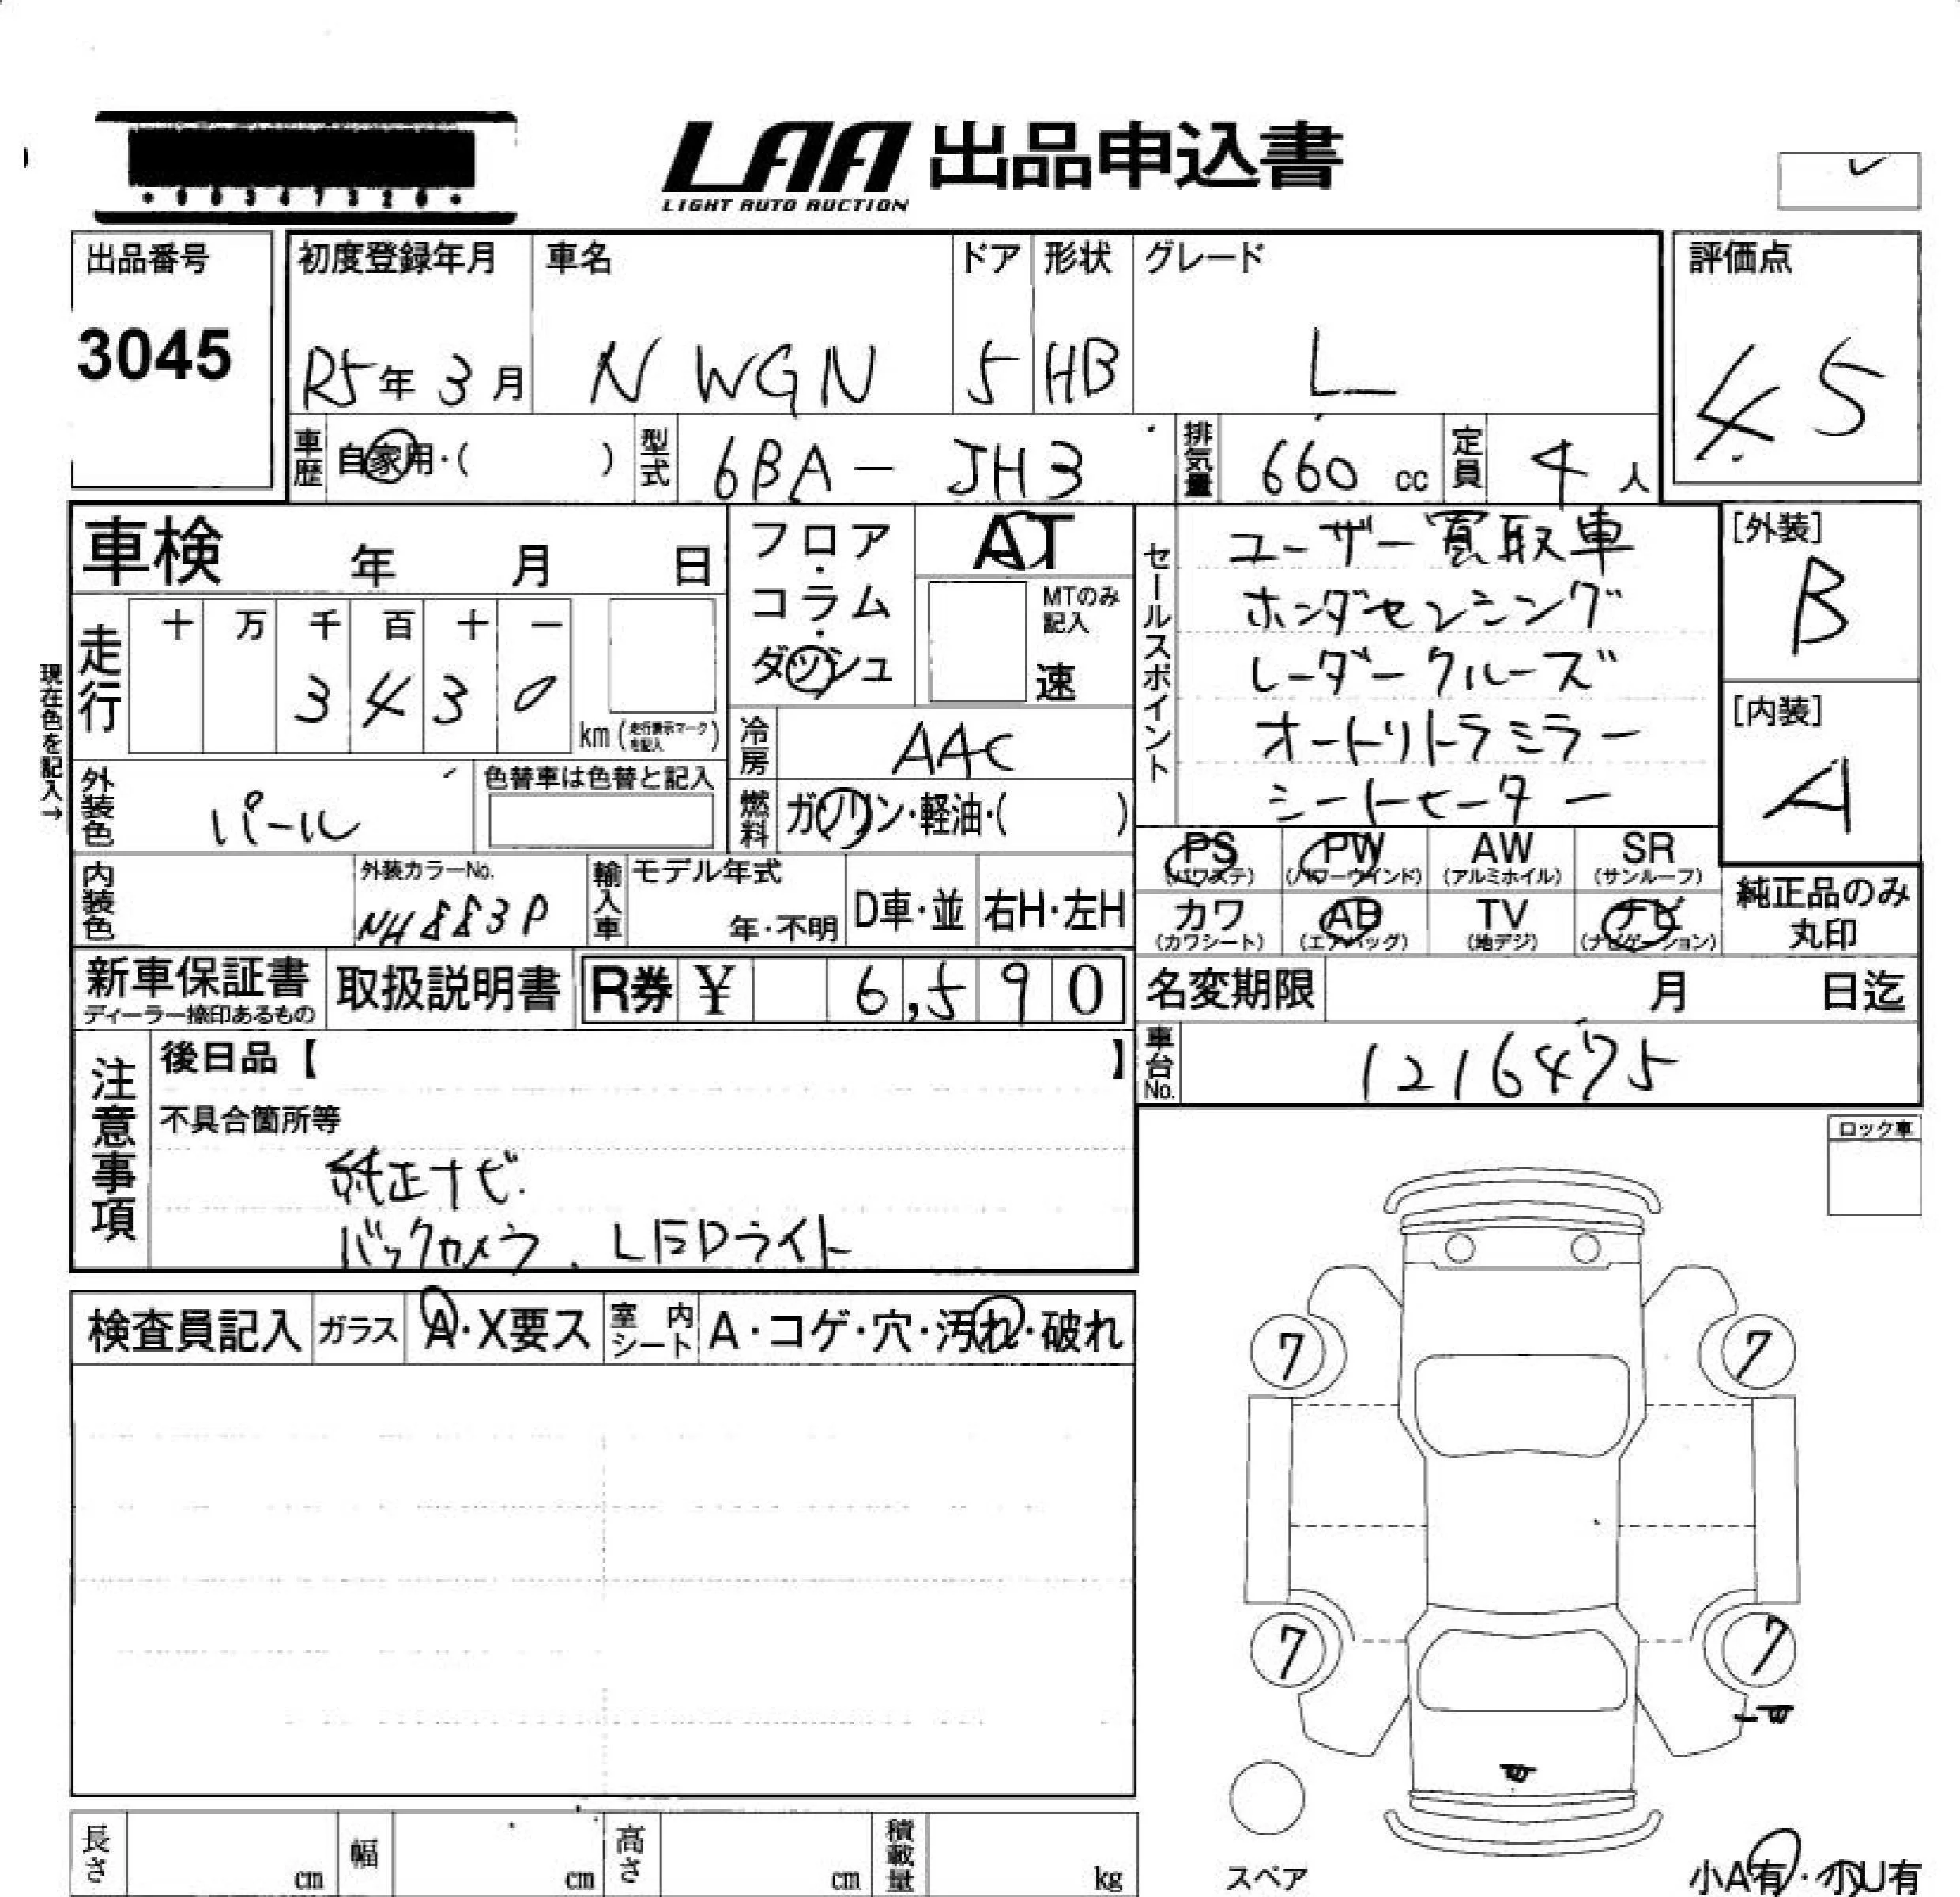 LAA 出品申込書
LIGHT AUTO AUCTION
出品番号
3045
初度登録年月
R5年3月
車名
N WGN
ドア
5
形状
HB
グレード
L
評価点
4.5
車歴 自家用・( )
型式 6BA - JH3
排気量 660 cc
定員 4 人
車検 年 月 日
現在色を記入→
走行
十 万 千 百 十 一
3 4 3 0
km (走行表示マークを記入)
フロア・コラム・ダッシュ
AT
MTのみ記入
速
冷房 AAC
燃料 ガソリン・軽油・( )
外装色 パール
色替車は色替と記入
内装色
外装カラーNo.
NH883P
輸入車
モデル年式
年・不明
D車・並
右H・左H
セールスポイント
ユーザー買取車
ホンダセンシング
レーダークルーズ
オートリトラミラー
シートヒーター
[外装]
B
[内装]
A
PS
(パワステ)
PW
(パワーウインド)
AW
(アルミホイル)
SR
(サンルーフ)
カワ
(カワシート)
AB
(エアバッグ)
TV
(地デジ)
ナビ
(ナビゲーション)
純正品のみ
丸印
新車保証書
ディーラー捺印あるもの
取扱説明書
R券 ¥ 6,590
名変期限 月 日迄
車台No. 1216475
注意事項
後日品【 】
不具合箇所等
純正ナビ
バックカメラ、LEDライト
ロック車
検査員記入
ガラス A・X要ス
室内シート A・コゲ・穴・汚れ・破れ
7 7
7 7
スペア
小A有・小U有
長さ cm
幅 cm
高さ cm
積載量 kg